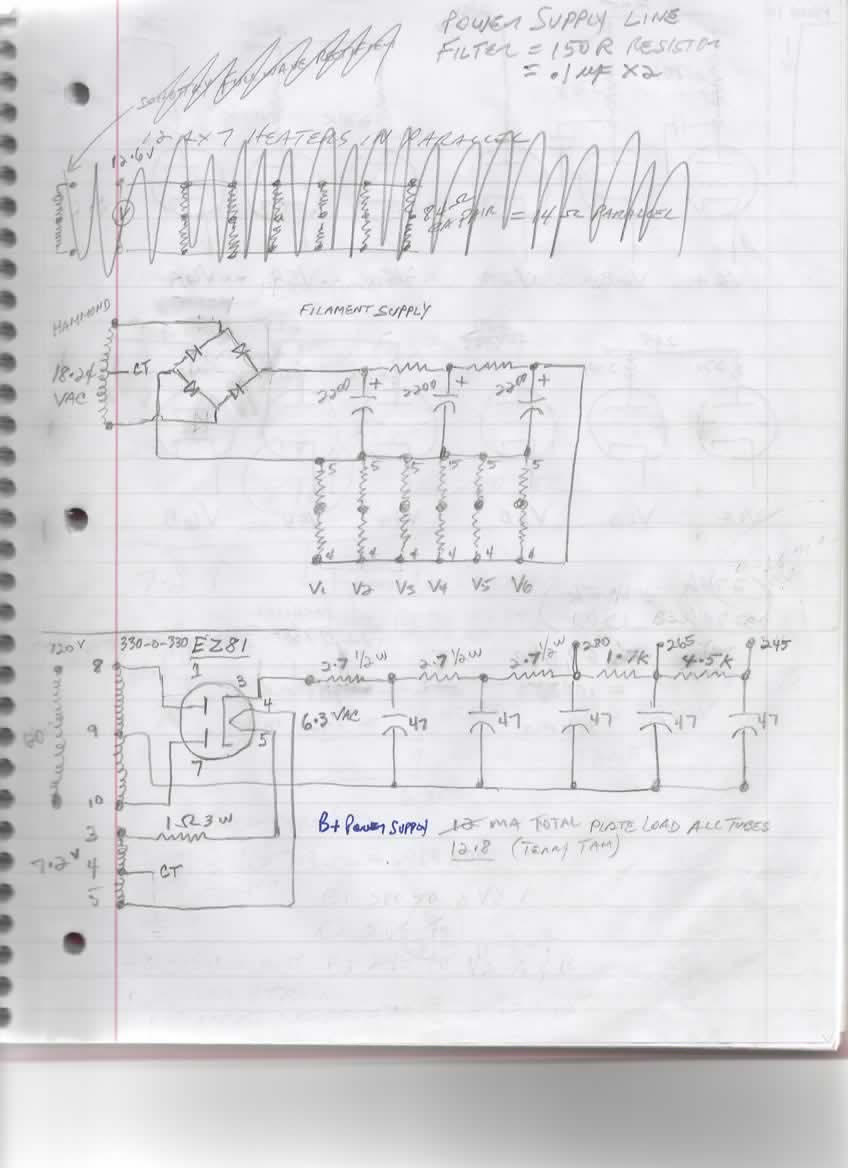 POWER SUPPLY LINE
FILTER = 150R RESISTOR
= .1 µF X2
SCHOTTKY FULL WAVE RECTIFIER
12 AX7 HEATERS IN PARALLEL
12.6V
V
84Ω
EA PAIR = 14Ω PARALLEL
HAMMOND
FILAMENT SUPPLY
18.24
VAC
CT
2200 +
2200 +
2200 +
5 5 5 5 5 5
4 4 4 4 4 4
V1 V2 V3 V4 V5 V6
120 V
330-0-330 EZ81
280
265
245
8
1
3
2.7 1/2W
2.7 1/2W
2.7 1/2W
4.5K
4
9
6.3 VAC
47
47
47
47
47
5
7
10
1Ω 3W
B+ POWER SUPPLY
12 MA TOTAL PLATE LOAD ALL TUBES
12.8 (TERRY TAM)
3
7.2V 4
CT
5